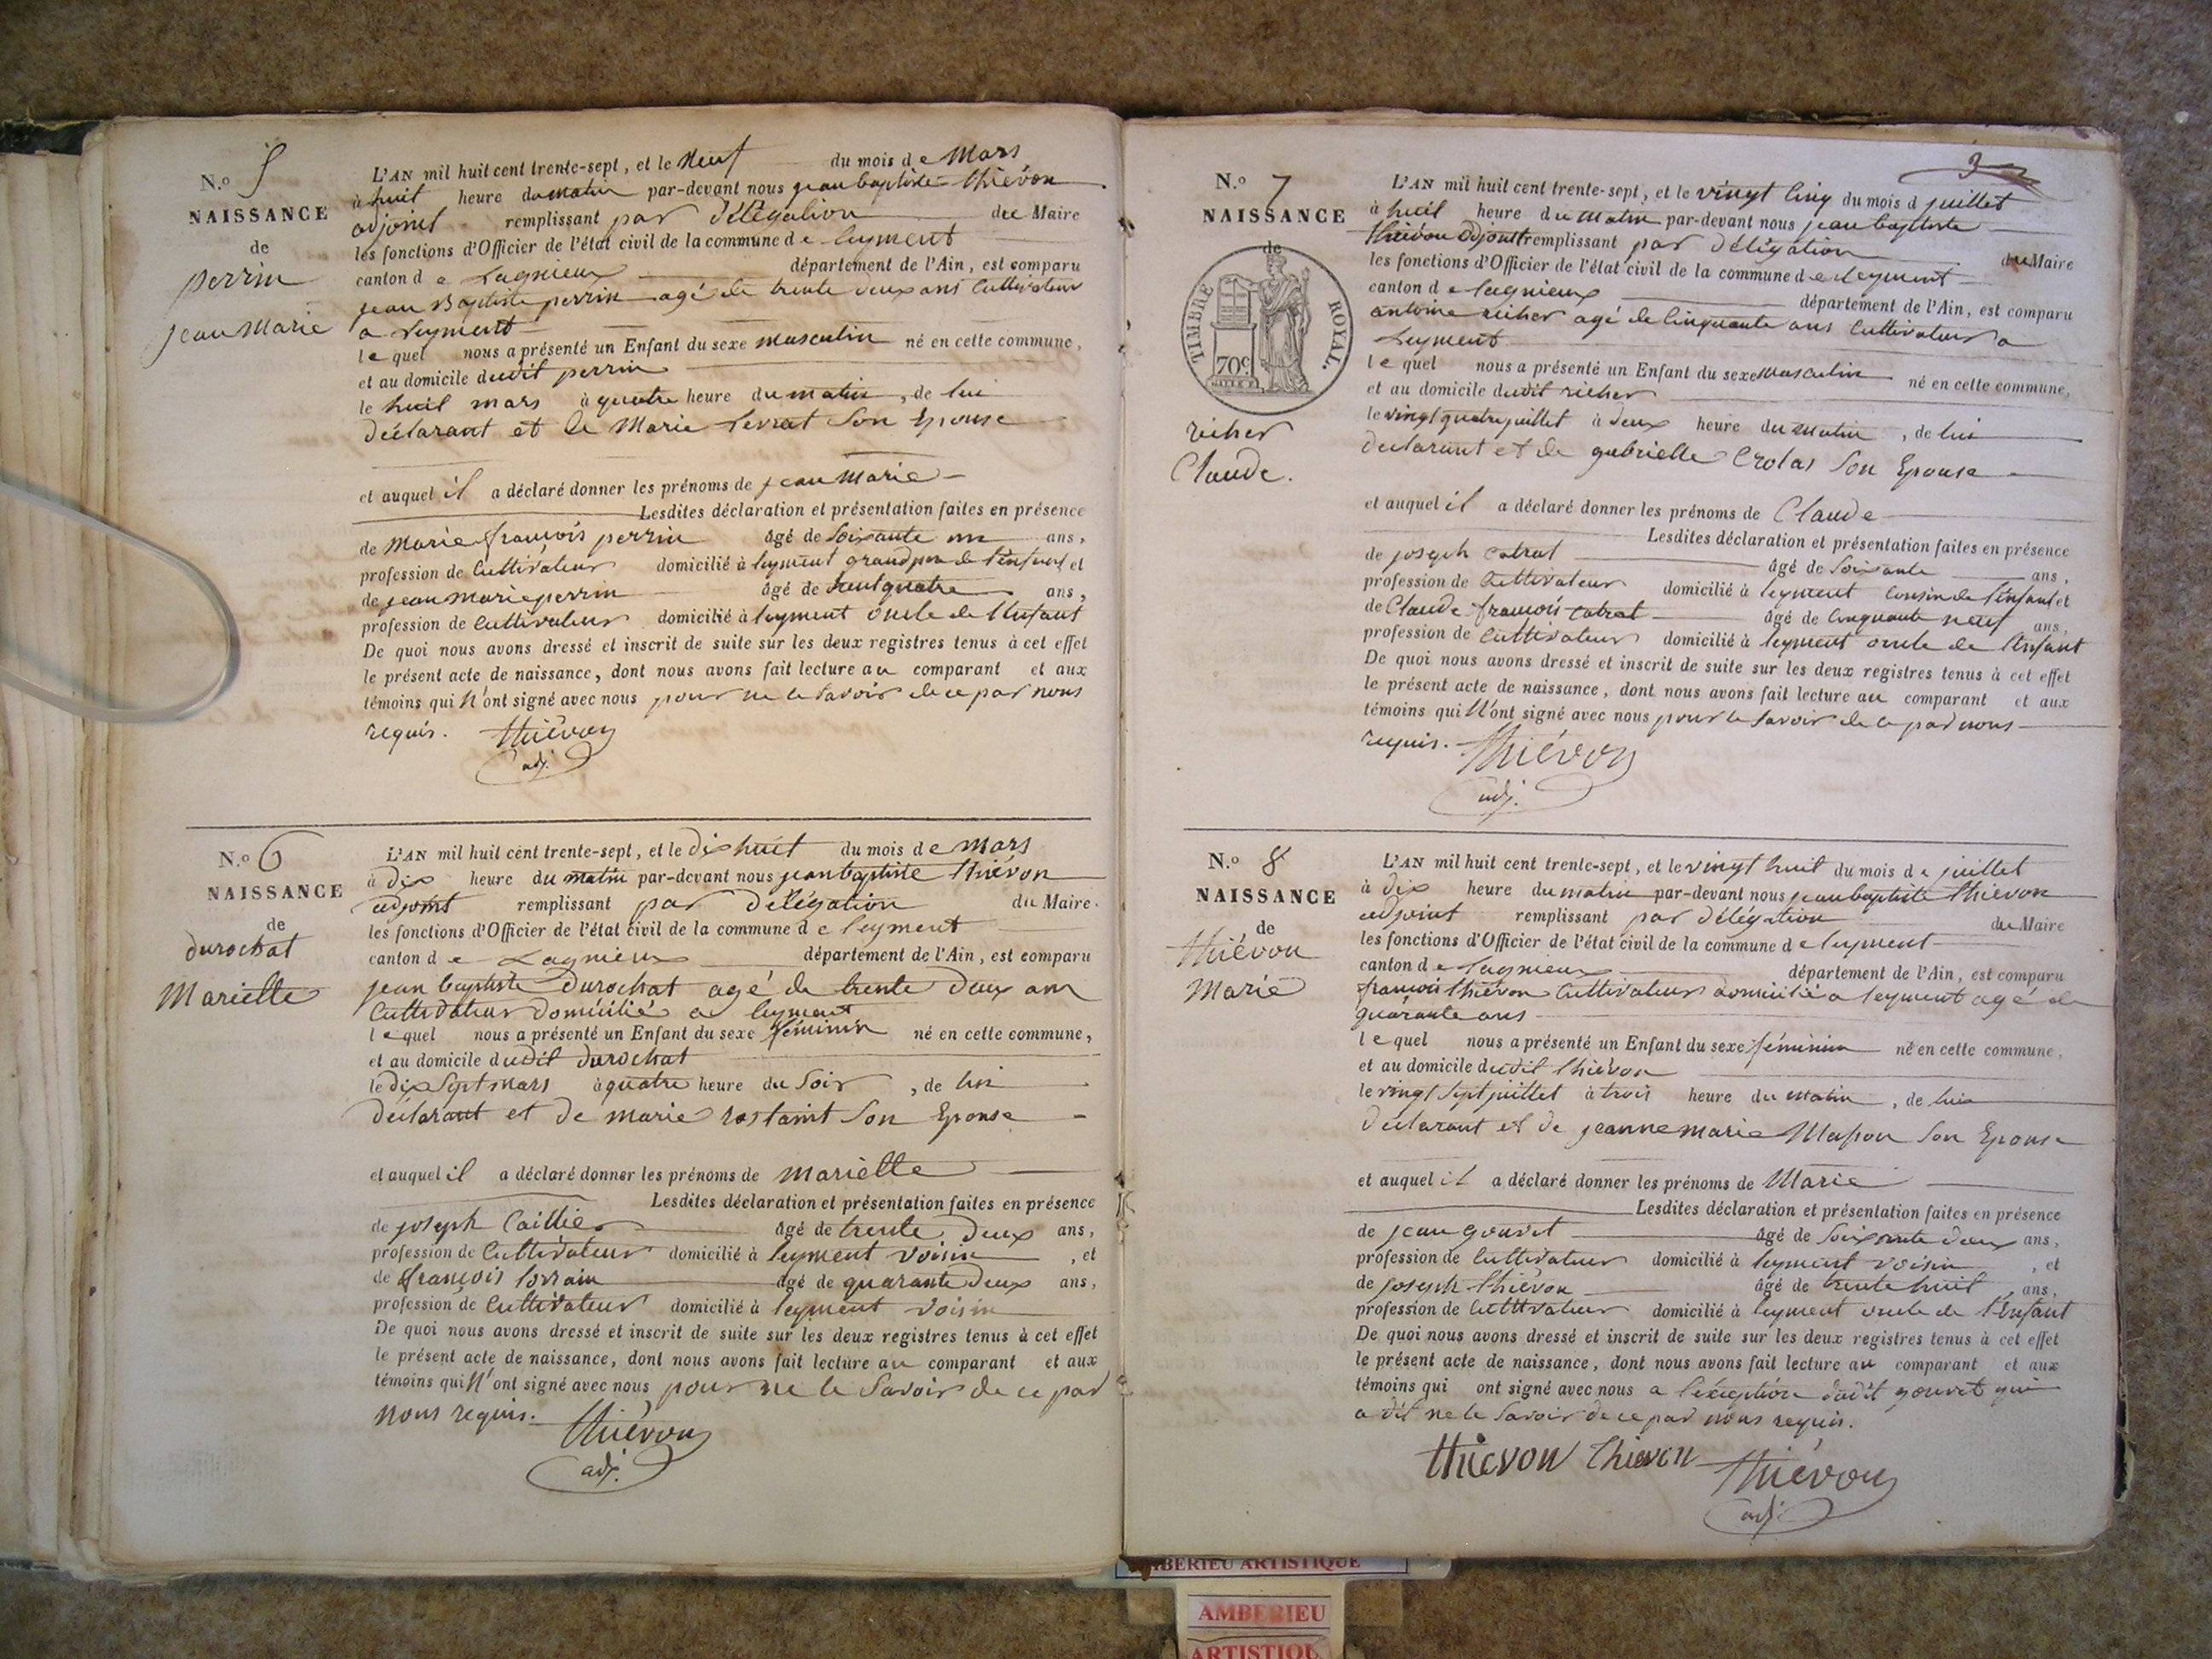 N.o 5
NAISSANCE
de
perrin
jean Marie
L'AN mil huit cent trente-sept, et le neuf du mois de Mars
à huit heure du matin par-devant nous jean baptiste thiévon
adjoint remplissant par délégation du Maire
les fonctions d'Officier de l'état civil de la commune de leyment
canton de Lagnieux département de l'Ain, est comparu
jean Baptiste perrin agé de trente deux ans Cultivateur
a Leyment
lequel nous a présenté un Enfant du sexe masculin né en cette commune,
et au domicile dudit perrin
le huit mars à quatre heure du matin, de lui
déclarant et de Marie levrat Son Epouse
et auquel il a déclaré donner les prénoms de jean Marie
Lesdites déclaration et présentation faites en présence
de Marie françois perrin âgé de Soixante un ans,
profession de Cultivateur domicilié à leyment grand per de l'enfant et
de jean marie perrin âgé de trent quatre ans,
profession de Cultivateur domicilié à leyment oncle de l'enfant
De quoi nous avons dressé et inscrit de suite sur les deux registres tenus à cet effet
le présent acte de naissance, dont nous avons fait lecture au comparant et aux
témoins qui N'ont signé avec nous pour ne le Savoir de ce par nous
requis. thiévon
adj.
N.o 6
NAISSANCE
de
durochat
Mariette
L'AN mil huit cent trente-sept, et le dix huit du mois de Mars
à dix heure du matin par-devant nous jean baptiste thiévon
adjoint remplissant par délégation du Maire
les fonctions d'Officier de l'état civil de la commune de leyment
canton de Lagnieux département de l'Ain, est comparu
jean baptiste durochat agé de trente deux ans
Cultivateur domicilié a leyment
lequel nous a présenté un Enfant du sexe féminin né en cette commune,
et au domicile dudit durochat
le dix Sept mars à quatre heure du Soir, de lui
déclarant et de marie rostaint Son Epouse
et auquel il a déclaré donner les prénoms de mariette
Lesdites déclaration et présentation faites en présence
de joseph Caillier âgé de trente deux ans,
profession de Cultivateur domicilié à leyment voisin, et
de françois lorrain âgé de quarante deux ans,
profession de Cultivateur domicilié à leyment voisin
De quoi nous avons dressé et inscrit de suite sur les deux registres tenus à cet effet
le présent acte de naissance, dont nous avons fait lecture au comparant et aux
témoins qui N'ont signé avec nous pour ne le Savoir de ce par
nous requis. thiévon
adj.
3
N.o 7
NAISSANCE
de
TIMBRE ROYAL.
70c
richer
Claude.
L'AN mil huit cent trente-sept, et le vingt Cinq du mois d juillet
à huit heure du matin par-devant nous jean baptiste
thiévon adjoint remplissant par délégation du Maire
les fonctions d'Officier de l'état civil de la commune de leyment
canton de lagnieux département de l'Ain, est comparu
antoine richer agé de Cinquante ans Cultivateur a
Leyment
lequel nous a présenté un Enfant du sexe masculin né en cette commune,
et au domicile dudit richer
le vingt quatre juillet à deux heure du matin, de lui
déclarant et de gabrielle Crolas Son Epouse
et auquel il a déclaré donner les prénoms de Claude
Lesdites déclaration et présentation faites en présence
de joseph cabrat âgé de Soixante ans,
profession de Cultivateur domicilié à leyment Cousin de l'enfant et
de Claude françois cabrat âgé de Cinquante neuf ans,
profession de Cultivateur domicilié à leyment oncle de l'enfant
De quoi nous avons dressé et inscrit de suite sur les deux registres tenus à cet effet
le présent acte de naissance, dont nous avons fait lecture au comparant et aux
témoins qui N'ont signé avec nous pour le Savoir de ce par nous
requis. thiévon
adj.
N.o 8
NAISSANCE
de
thiévon
Marie
L'AN mil huit cent trente-sept, et le vingt huit du mois de juillet
à dix heure du matin par-devant nous jean baptiste thiévon
adjoint remplissant par délégation du Maire
les fonctions d'Officier de l'état civil de la commune de leyment
canton de lagnieux département de l'Ain, est comparu
françois thiévon Cultivateur domicilié a leyment agé de
quarante ans
lequel nous a présenté un Enfant du sexe féminin né en cette commune,
et au domicile dudit thiévon
le vingt Sept juillet à trois heure du matin, de lui
déclarant et de jeanne marie Masson Son Epouse
et auquel il a déclaré donner les prénoms de Marie
Lesdites déclaration et présentation faites en présence
de jean gouvet âgé de Soixante deux ans,
profession de Cultivateur domicilié à leyment voisin, et
de joseph thiévon âgé de trente huit ans,
profession de Cultivateur domicilié à leyment oncle de l'Enfant
De quoi nous avons dressé et inscrit de suite sur les deux registres tenus à cet effet
le présent acte de naissance, dont nous avons fait lecture au comparant et aux
témoins qui ont signé avec nous a l'exception dudit gouvet qui
a dit ne le Savoir de ce par nous requis.
thievon thievon thiévon
adj.
AMBERIEU ARTISTIQUE
AMBERIEU
ARTISTIQU